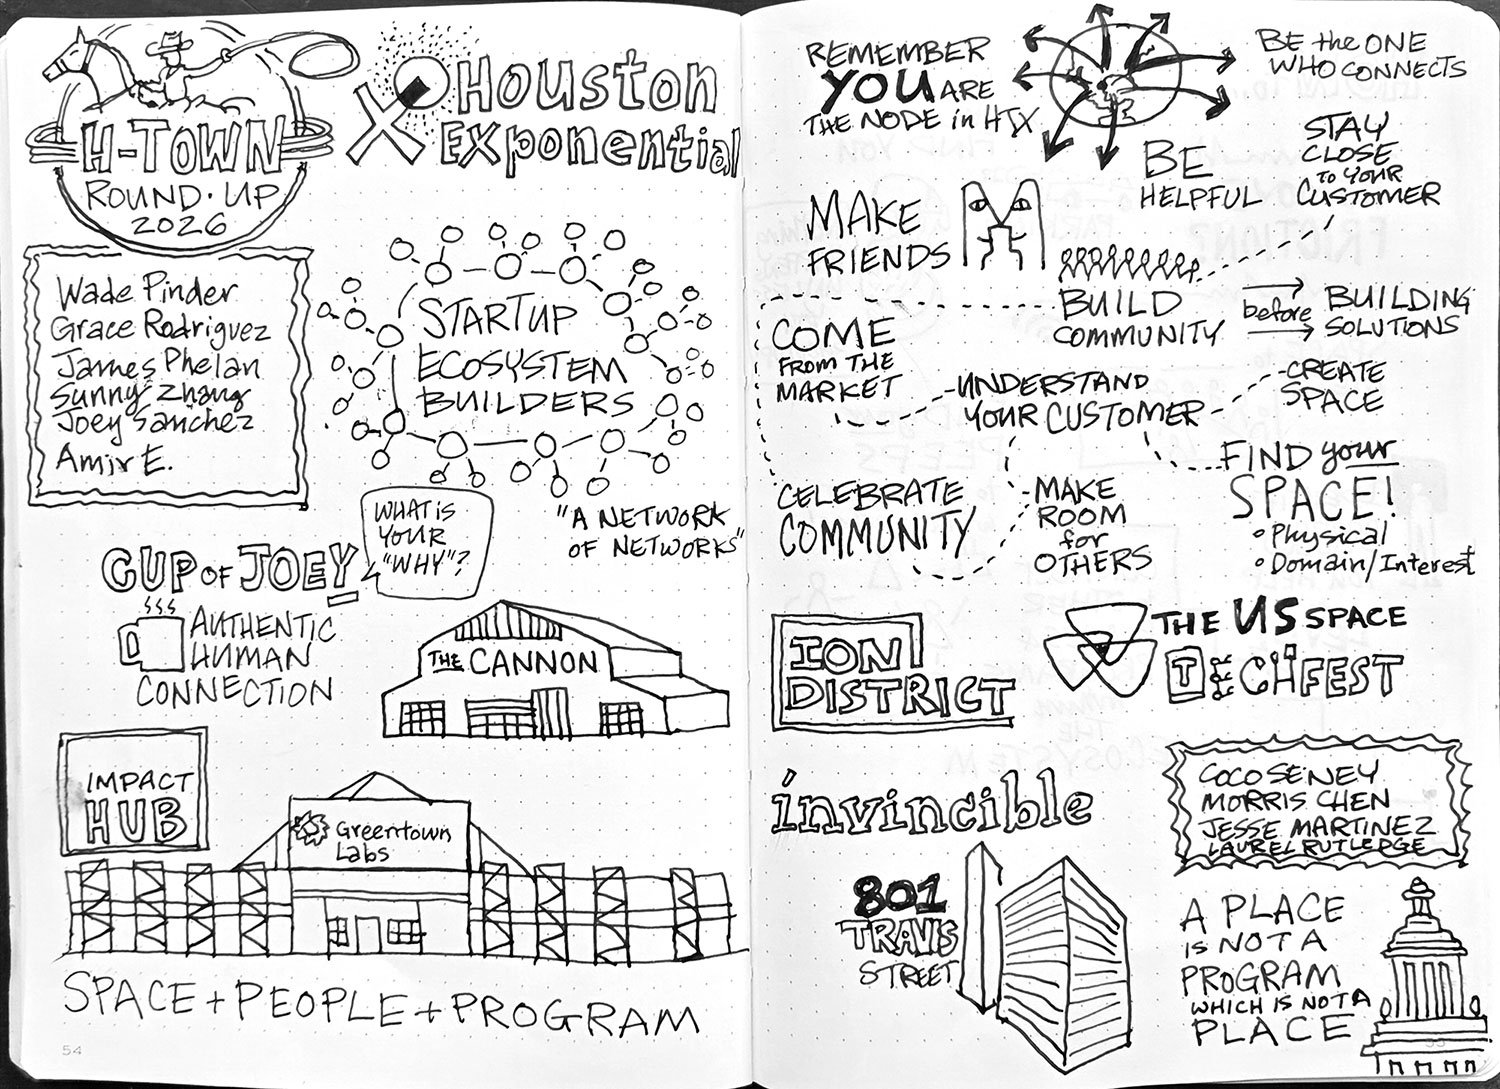 H-TOWN
ROUND-UP
2026
Houston
Exponential
Wade Pinder
Grace Rodriguez
James Phelan
Sunny Zhang
Joey Sanchez
Amir E.
STARTUP
ECOSYSTEM
BUILDERS
"A NETWORK
OF NETWORKS"
WHAT IS
YOUR
"WHY"?
CUP OF JOEY
AUTHENTIC
HUMAN
CONNECTION
THE CANNON
IMPACT
HUB
Greentown
Labs
SPACE + PEOPLE + PROGRAM
54
REMEMBER
YOU ARE
THE NODE in HTX
BE the ONE
WHO CONNECTS
BE
HELPFUL
STAY
CLOSE
TO YOUR
CUSTOMER
MAKE
FRIENDS
BUILD
COMMUNITY
before
BUILDING
SOLUTIONS
COME
FROM THE
MARKET
UNDERSTAND
YOUR CUSTOMER
CREATE
SPACE
FIND your
SPACE!
Physical
Domain/Interest
CELEBRATE
COMMUNITY
MAKE
ROOM
for
OTHERS
ION
DISTRICT
THE US SPACE
TECHFEST
invincible
COCO SENEY
MORRIS CHEN
JESSE MARTINEZ
LAUREL RUTLEDGE
801
TRAVIS
STREET
A PLACE
IS NOT A
PROGRAM
WHICH IS NOT A
PLACE
55